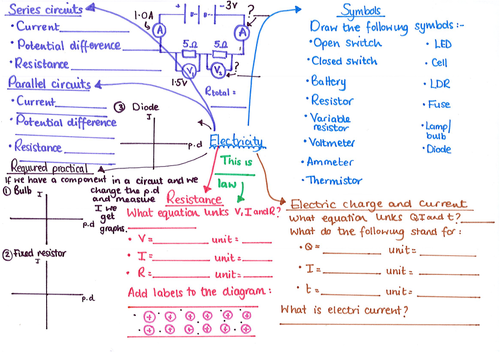 Series circuits
• Current
• Potential difference
• Resistance
Parallel circuits
• Current
• Potential difference
• Resistance
1.0A
3V
?
A
A
5Ω
5Ω
V₁
V₂
?
1.5V
Rtotal =
Symbols
Draw the following symbols:-
• Open switch
• Closed switch
• Battery
• Resistor
• Variable resistor
• Voltmeter
• Ammeter
• Thermistor
• LED
• Cell
• LDR
• Fuse
• Lamp/
bulb
• Diode
Electricity
This is
law
Required practical
If we have a component in a circuit and we
change the p.d
and measure
I we
get
graphs.
① Bulb
I
p.d
② Fixed resistor
I
p.d
③ Diode
I
p.d
Resistance
What equation links V, I and R?
• V = unit =
• I = unit =
• R = unit =
Add labels to the diagram:
+ + + + + +
+ + + + + +
Electric charge and current
What equation links Q I and t?
What do the following stand for:
• Q = unit =
• I = unit =
• t = unit =
What is electri current?